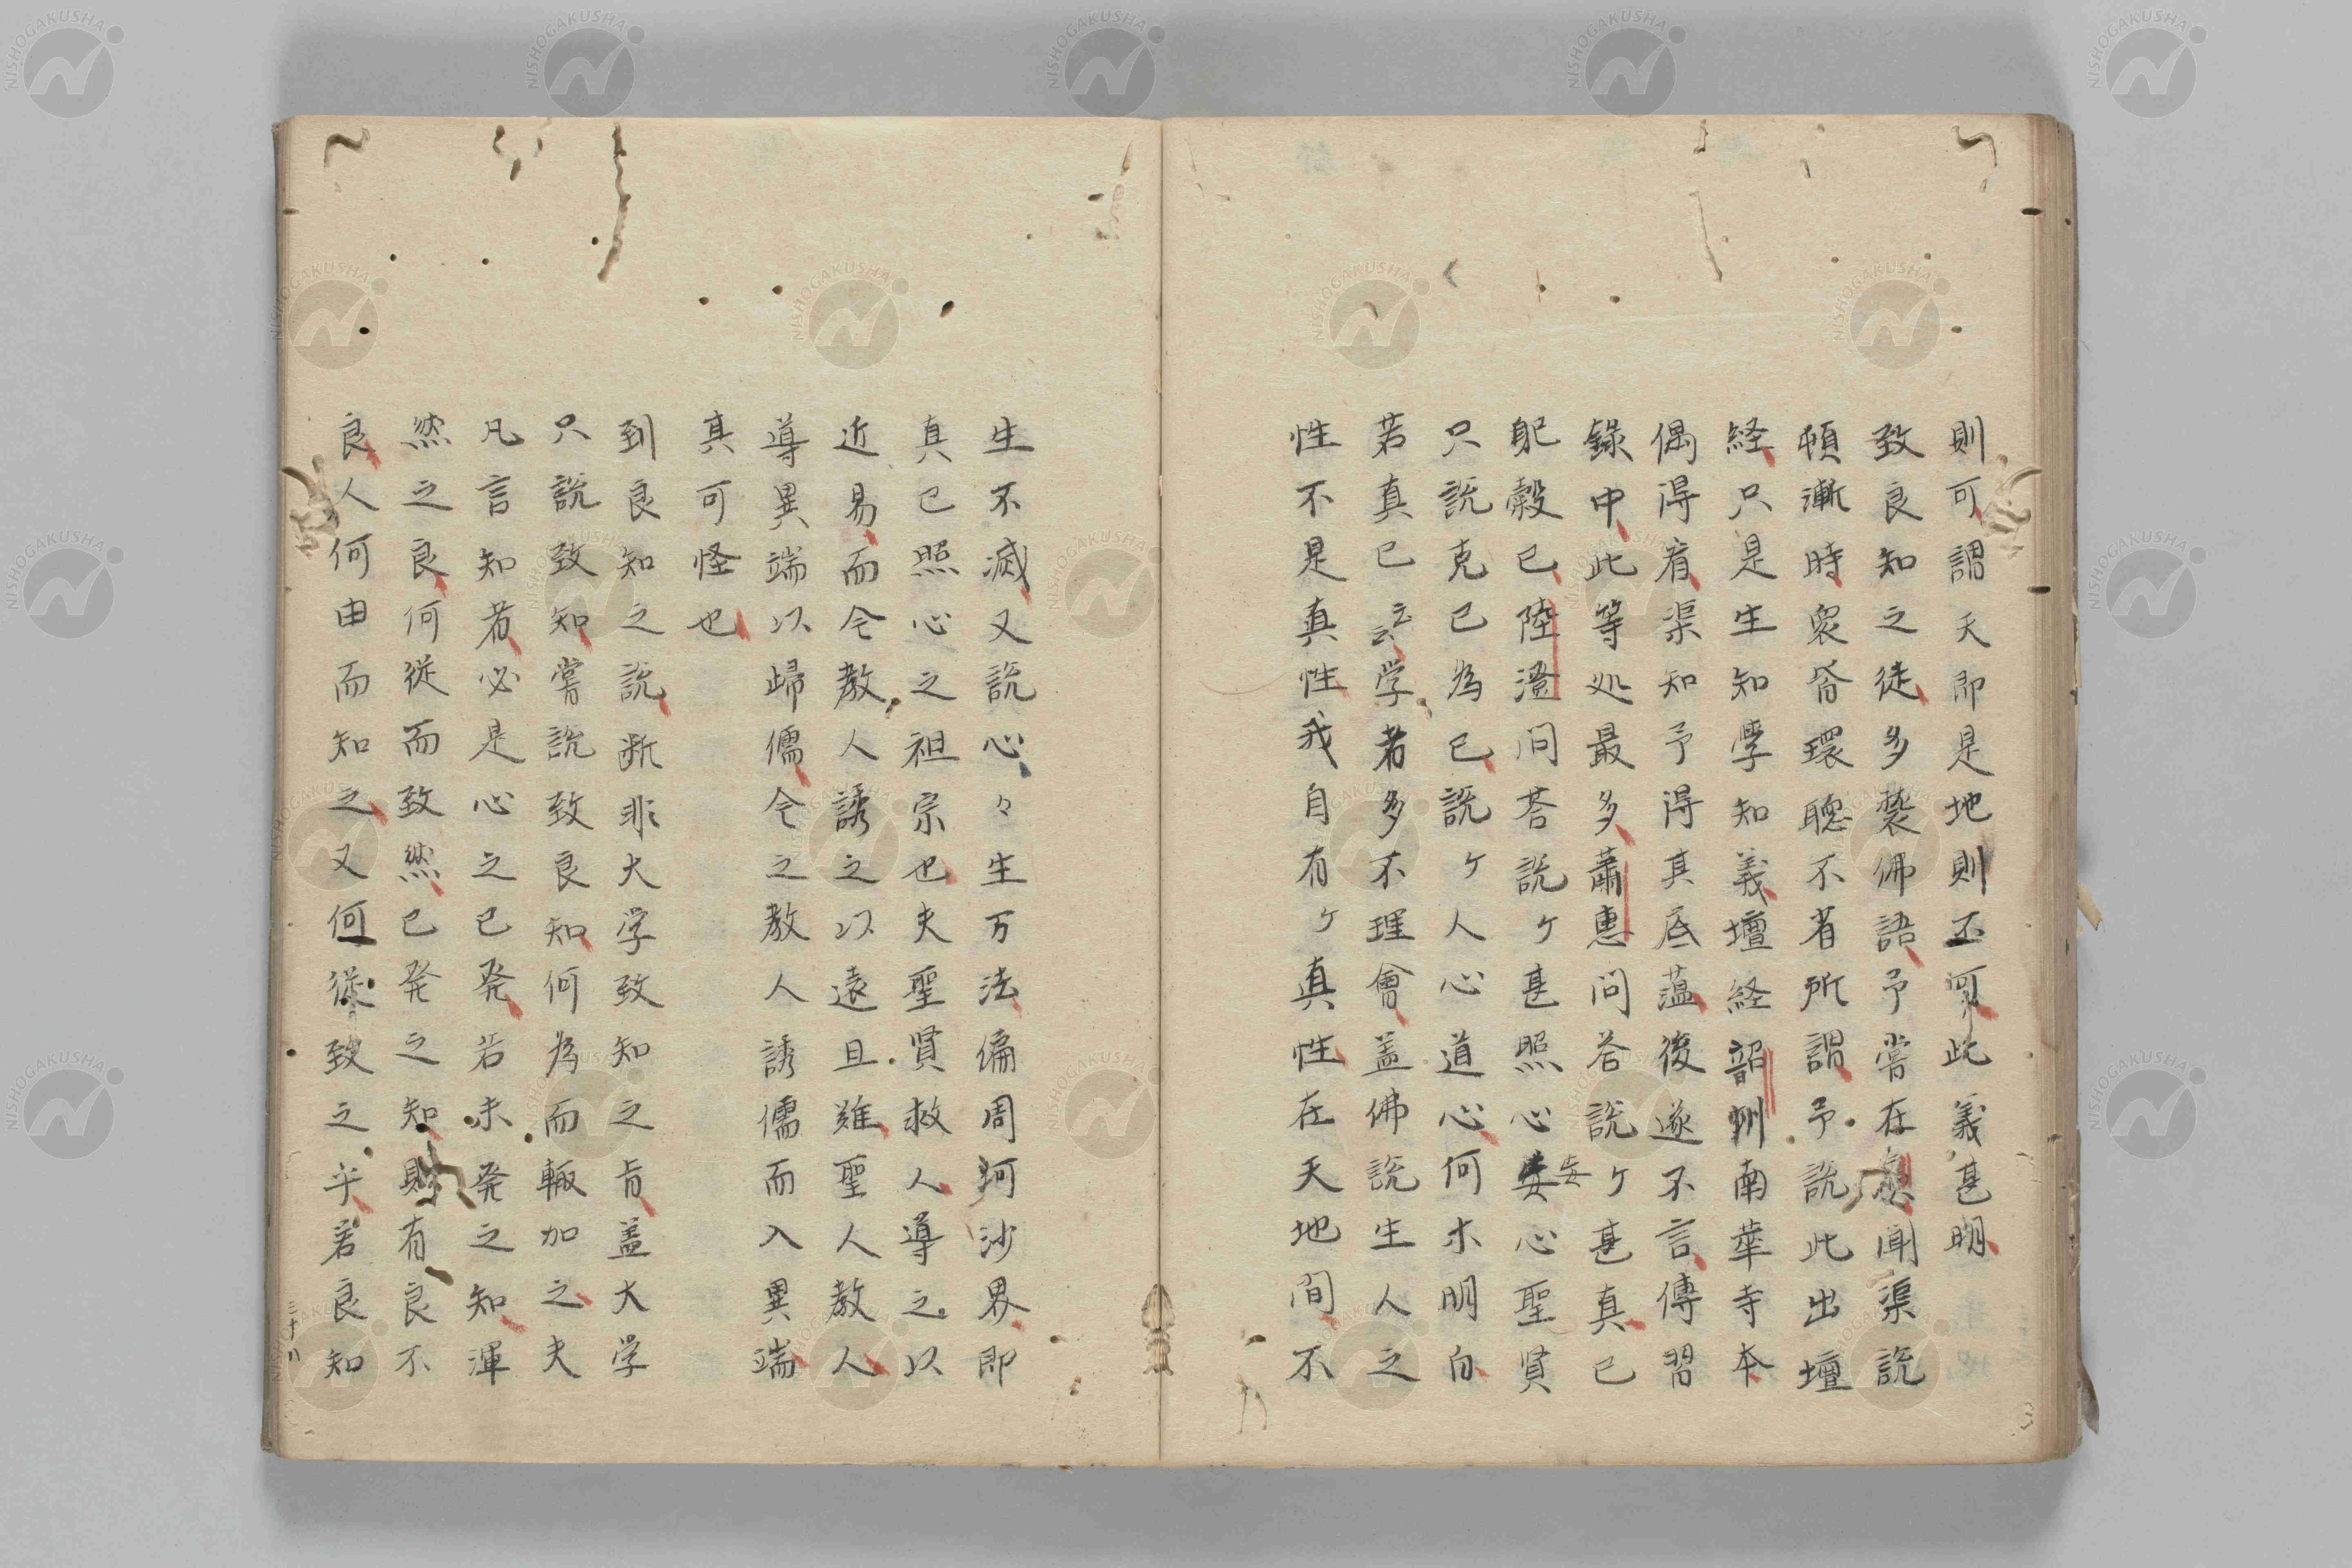 則可謂天即是地則不可此義甚明
致良知之徒多襲佛語予嘗在聞渠説
頓漸時衆昏環聰不省所謂予説此出壇
経只是生知學知義壇経韶州南華寺本
偶得看渠知予得其底蘊後遂不言傳習
錄中此等処最多蕭惠問荅説ケ甚真已
躯殼已陸澄問荅説ケ甚照心安心聖賢
只説克已為已説ケ人心道心何木明白
若真已云云学者多不理會盖佛説生人之
性不是真性我自有ケ真性在天地間不
生不滅又説心々生万法徧周河沙界即
真已照心之祖宗也夫聖賢救人導之以
近易而令教人誘之以遠且雖聖人教人
導異端以歸儒令之教人誘儒而入異端
其可怪也
到良知之説断非大学致知之旨盖大学
只説致知嘗説致良知何為而輙加之夫
凡言知者必是心之已発若未発之知渾
然之良何從而致然已発之知則有良不
良人何由而知之又何從致之乎若良知
三十八
NISHOGAKUSHA